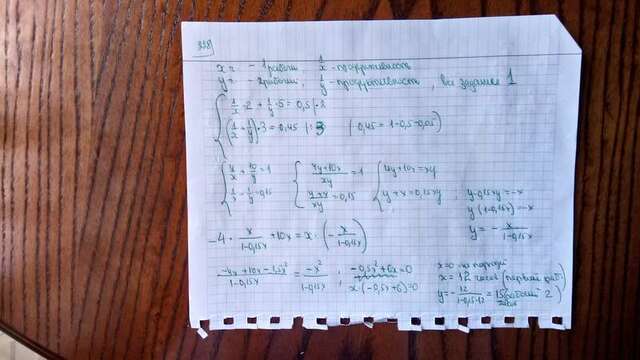 x = - 1 рабочий 1/x - продуктивность
y = - 2 рабочий, 1/y - продуктивность, все задание 1
{ 1/x · 2 + 1/y · 5 = 0,5 | · 2
(1/x + 1/y) · 3 = 0,45 | : 3 (0,45 = 1 - 0,5 - 0,05)
{ 4/x + 10/y = 1 { (4y + 10x)/xy = 1 { 4y + 10x = xy
1/x + 1/y = 0,15 (y + x)/xy = 0,15 y + x = 0,15xy ; y - 0,15xy = -x
y (1 - 0,15x) = -x
y = - x/(1 - 0,15x)
-4 · x/(1 - 0,15x) + 10x = x · (- x/(1 - 0,15x))
(-4x + 10x - 1,5x²)/(1 - 0,15x) = -x²/(1 - 0,15x) ; -0,5x² + 6x = 0
x · (-0,5x + 6) = 0
x = 0 не подходит
x = 12 часов (первый раб)
y = - 12/(1 - 0,15 · 12) = 15 (рабочий 2)